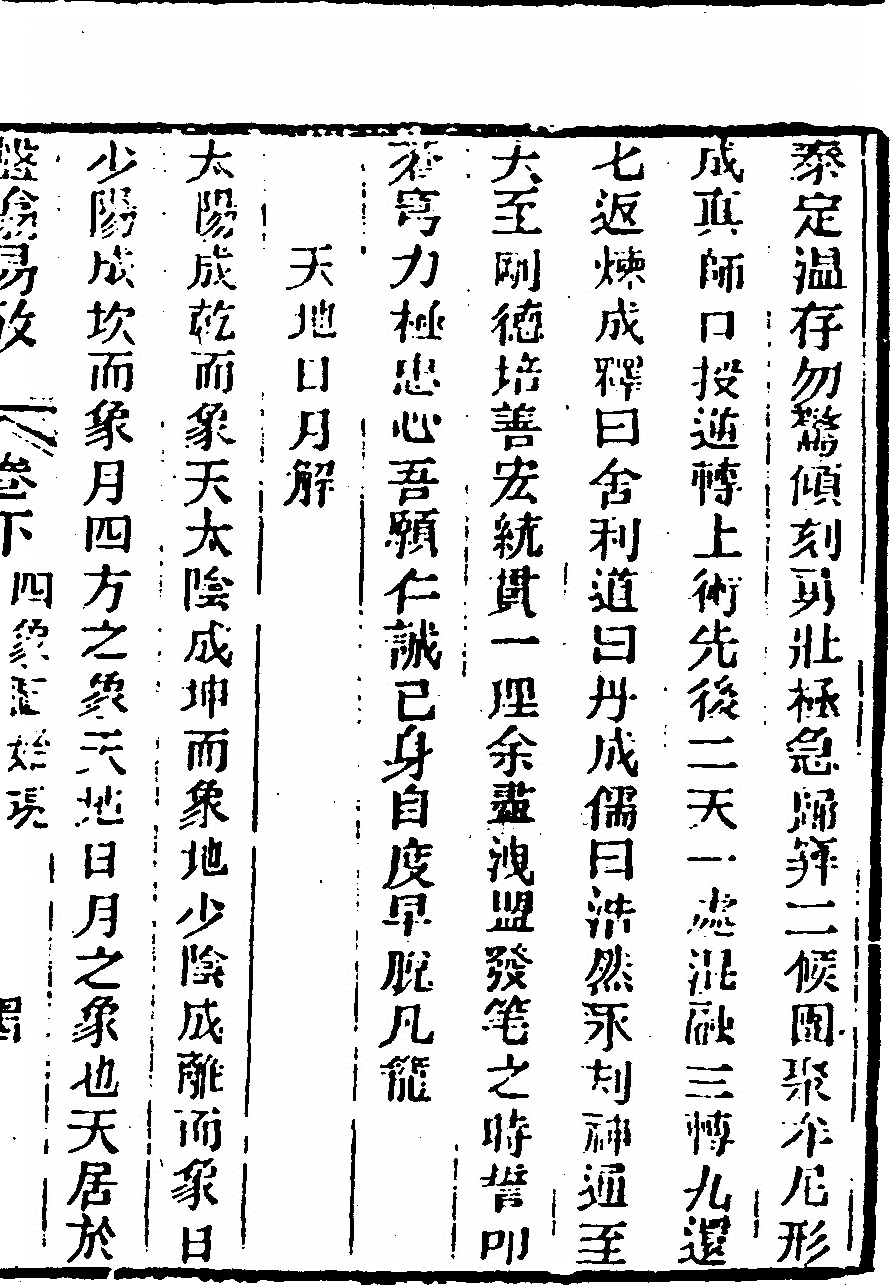 泰定温存勿驚傾刻勇壯極急歸箨二候團聚牟尼形
成真師口授逆轉上術先後二天一處混融三轉九還
七返煉成釋曰舍利道曰丹成儒曰浩然永刦神通至
大至剛德培善宏統貫一理余盡洩盟發笔之時誓叩
蒼穹力極忠心吾願仁誠已身自度早脫凡籠
天地日月解
太陽成乾而象天太陰成坤而象地少陰成離而象日
少陽成坎而象月四方之象天地日月之象也天居於
易攷 卷下 四象圖始現